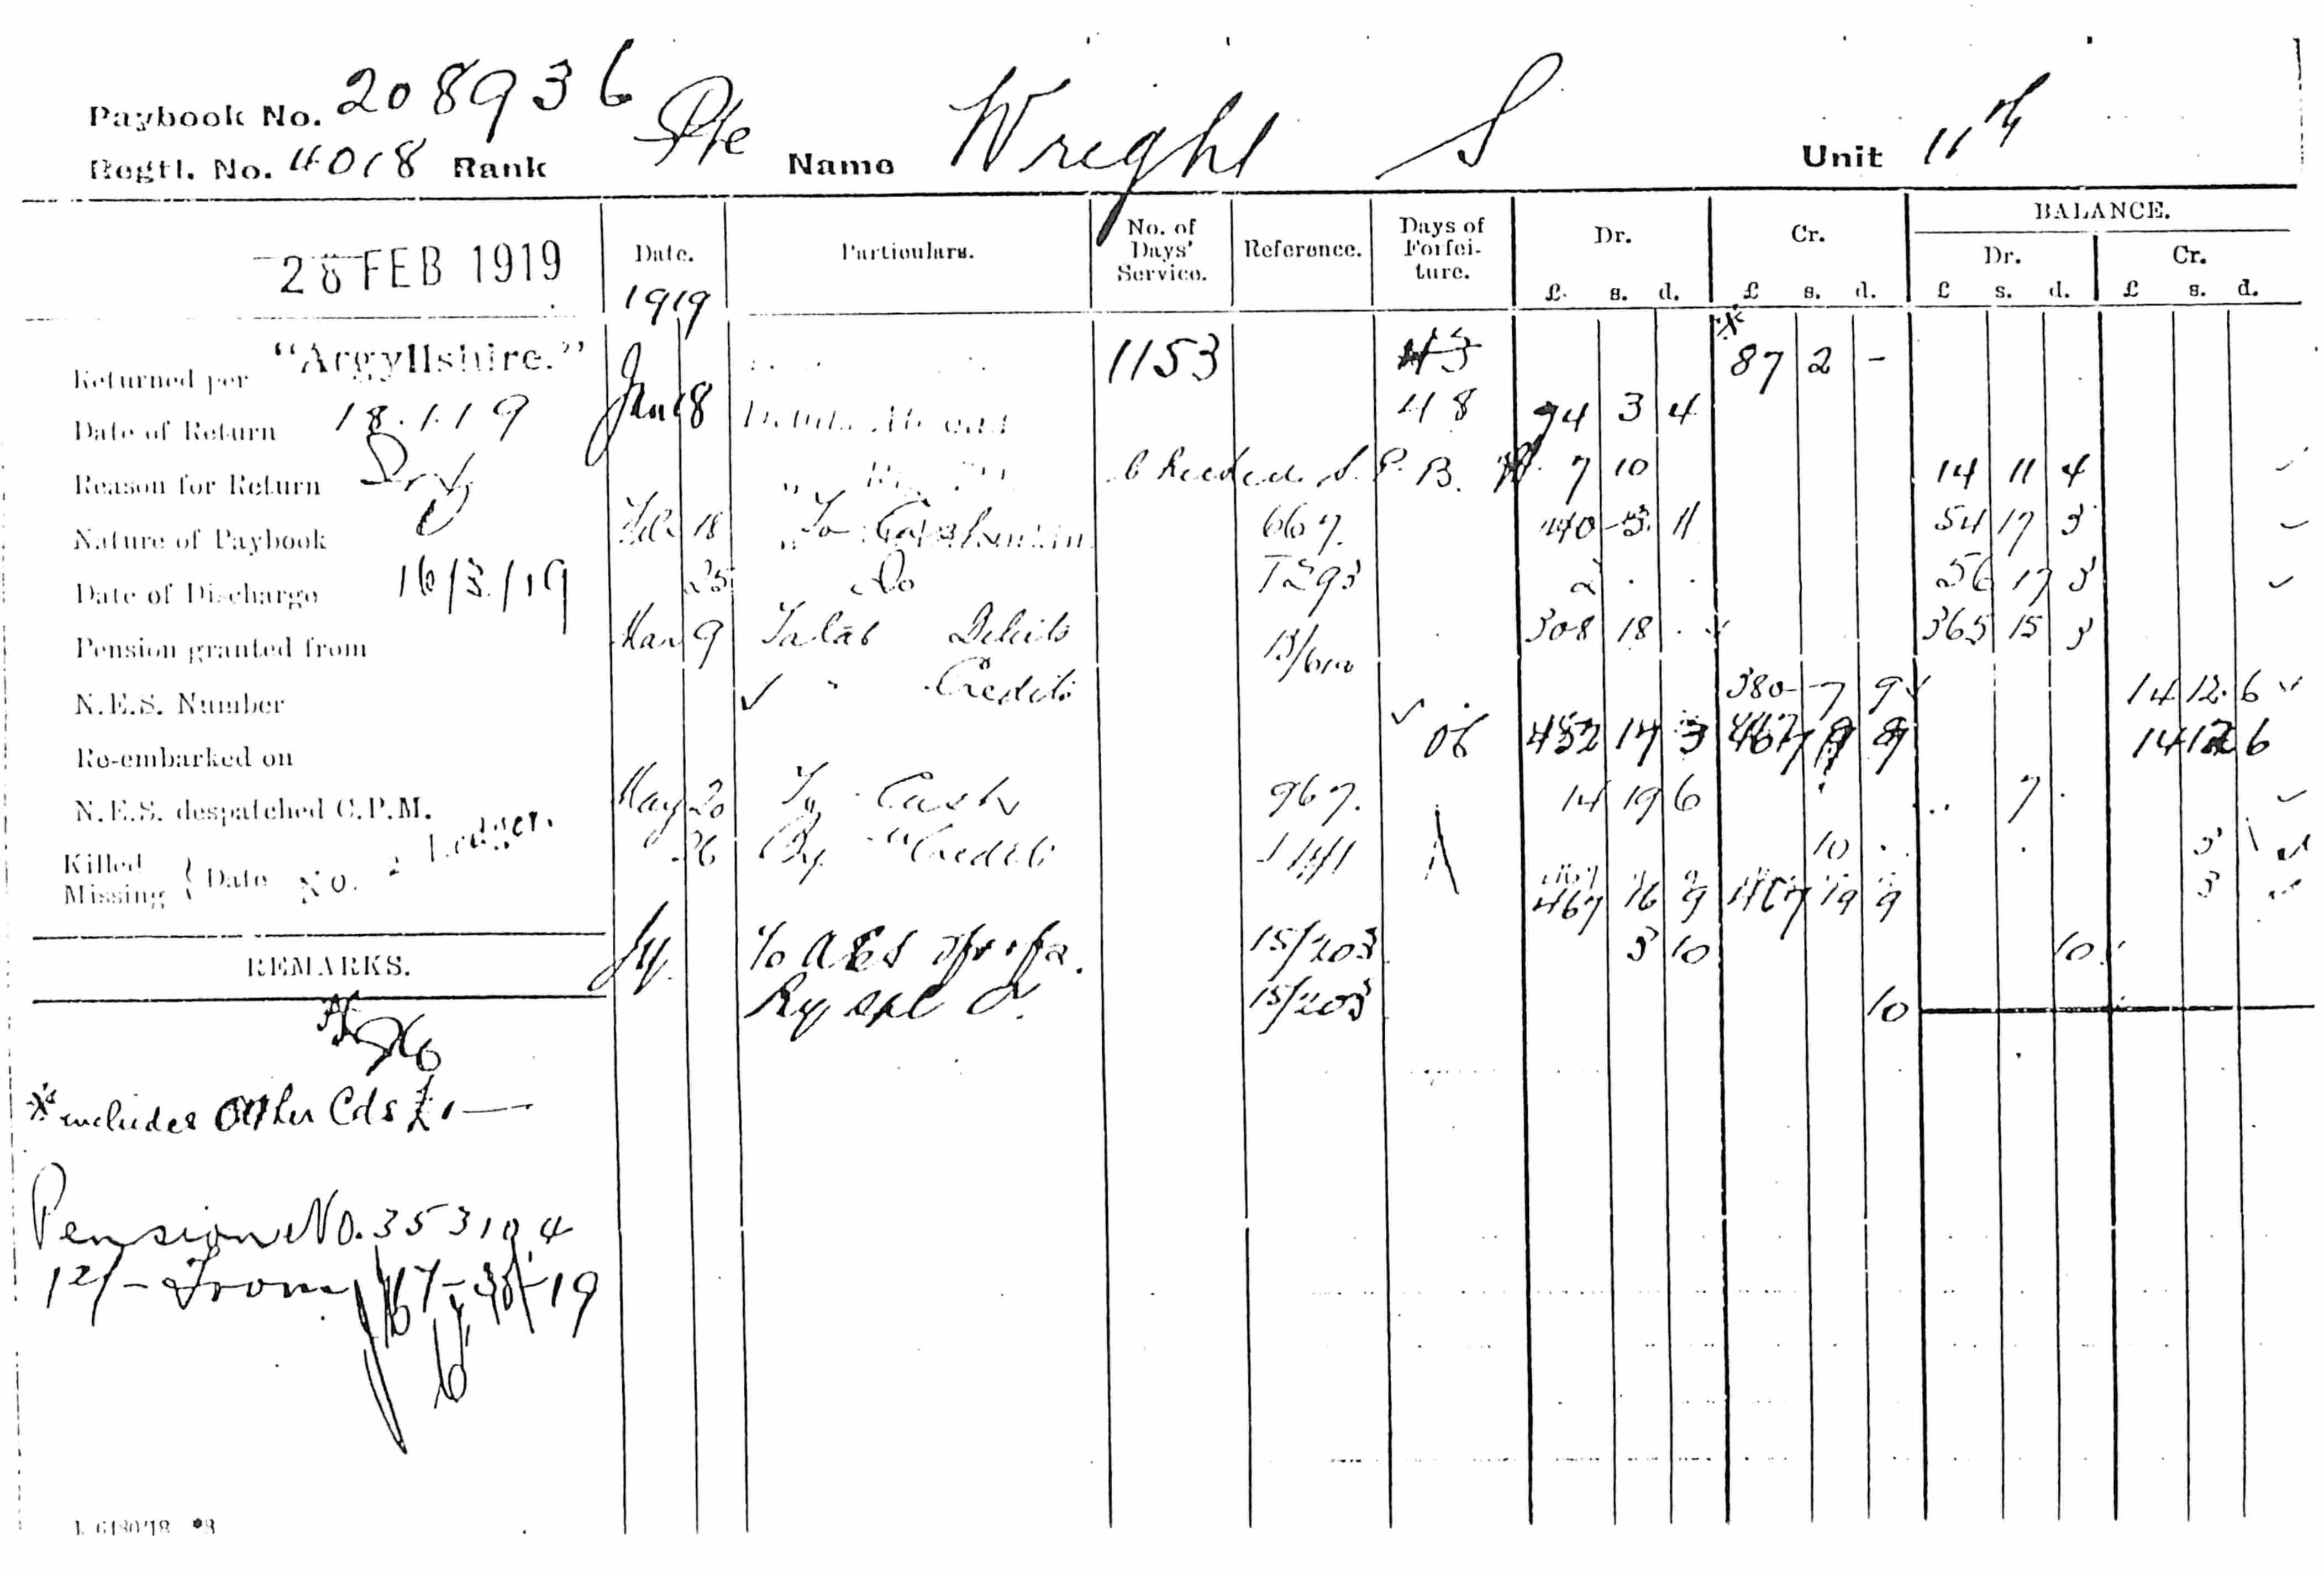 Paybook No. 208936
Regtl. No. 4018 Rank Pte Name Wright S Unit 11th
28 FEB 1919
Date. Particulars. No. of Days' Service. Reference. Days of Forfeiture. Dr. £ s. d. Cr. £ s. d. BALANCE. Dr. £ s. d. Cr. £ s. d.
1919
Returned per "Argyllshire." 1153 43 * 87 2 -
Date of Return 18.1.19 Jan 18 48 94 3 4
Reason for Return Checked S.P.B. 7 10 14 11 4
Nature of Paybook Feb 18 " To 667 40 5 11 54 17 3
Date of Discharge 16/3/19 25 Do T293 2 . . 56 17 3
Pension granted from Mar 9 Total Debits 308 18 . 365 15 3
N.E.S. Number " Credits 380 7 9 14 12 6
Re-embarked on 452 17 3 467 9 9 14 12 6
N.E.S. despatched C.P.M. May 20 To Cash 967. 14 19 6 7 .
Killed Missing } Date No. 2 Ledger. 26 By Credit 10 . 3
467 16 9 467 19 9 3
REMARKS. To 15/203 3 10 10
By 15/203 10
* includes Other Cds £1 —
Pension No. 353104
12/- From 17-3-19